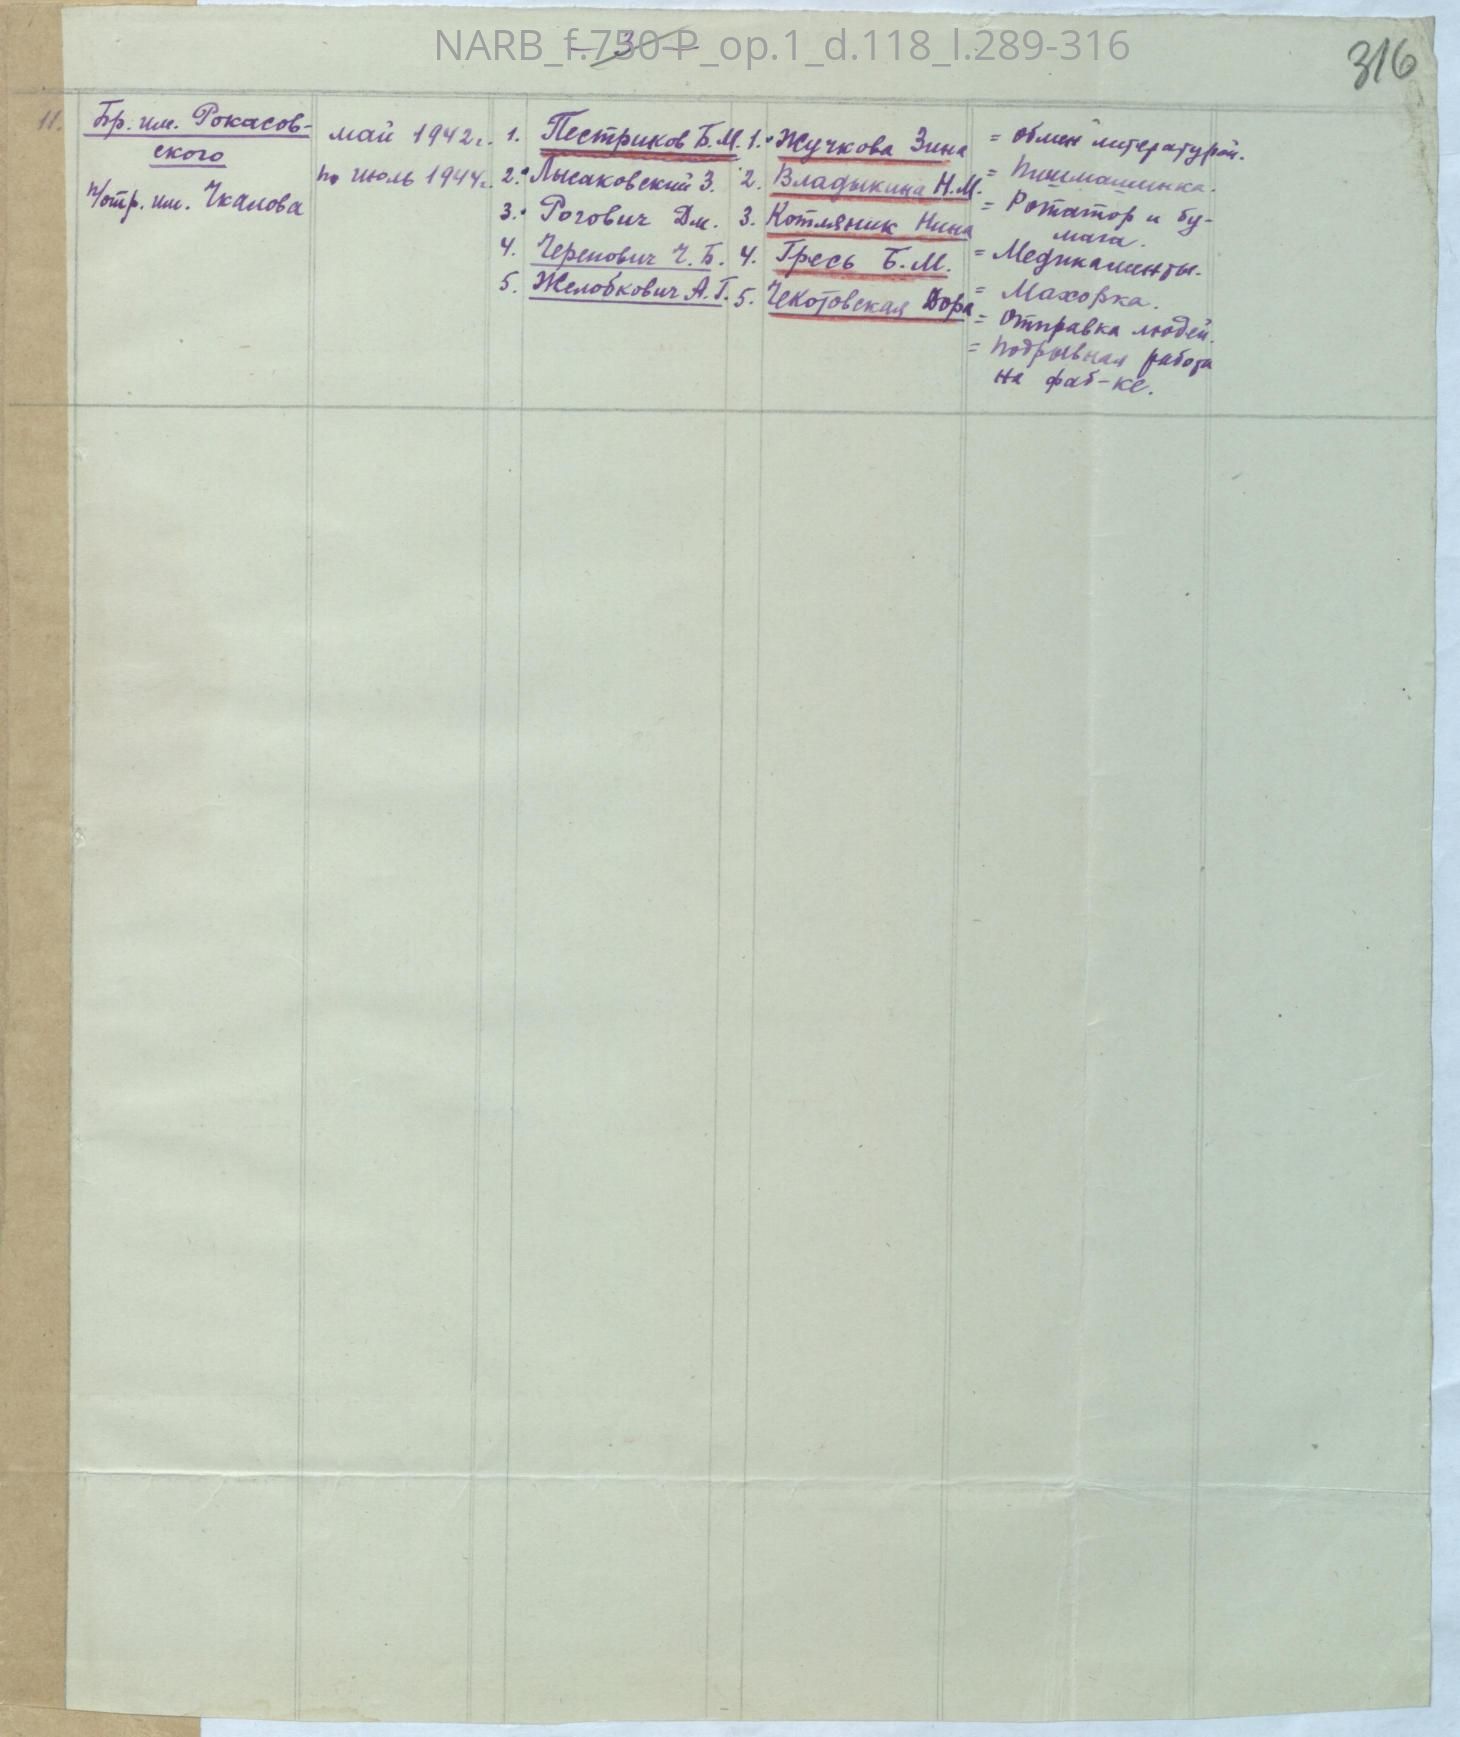 NARB_f.750-P_op.1_d.118_l.289-316
- 3 -
316
11.
Бр. им. Рокасов-
ского
п/отр. им. Чкалова
май 1942 г.
по июль 1944 г.
1. Пестриков Б.М.
2. Лысаковский З.
3. Рогович Дм.
4. Черепович Ч.Б.
5. Желобкович А.Г.
1. Жучкова Зина
2. Владыкина Н.М.
3. Котляник Нина
4. Гресь Б.М.
5. Чекотовская Дора
= обмен литературой.
= Пишмашинка.
= Ротатор и бу-
мага.
= Медикаменты.
= Махорка.
= Отправка людей.
= Подрывная работа
на фаб-ке.